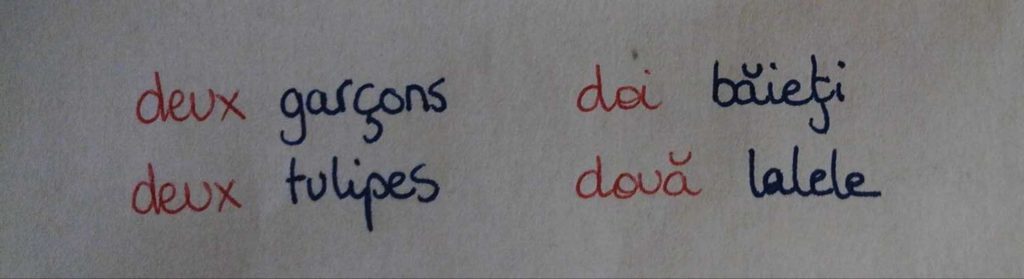 deux garçons doi băieți
deux tulipes două lalele